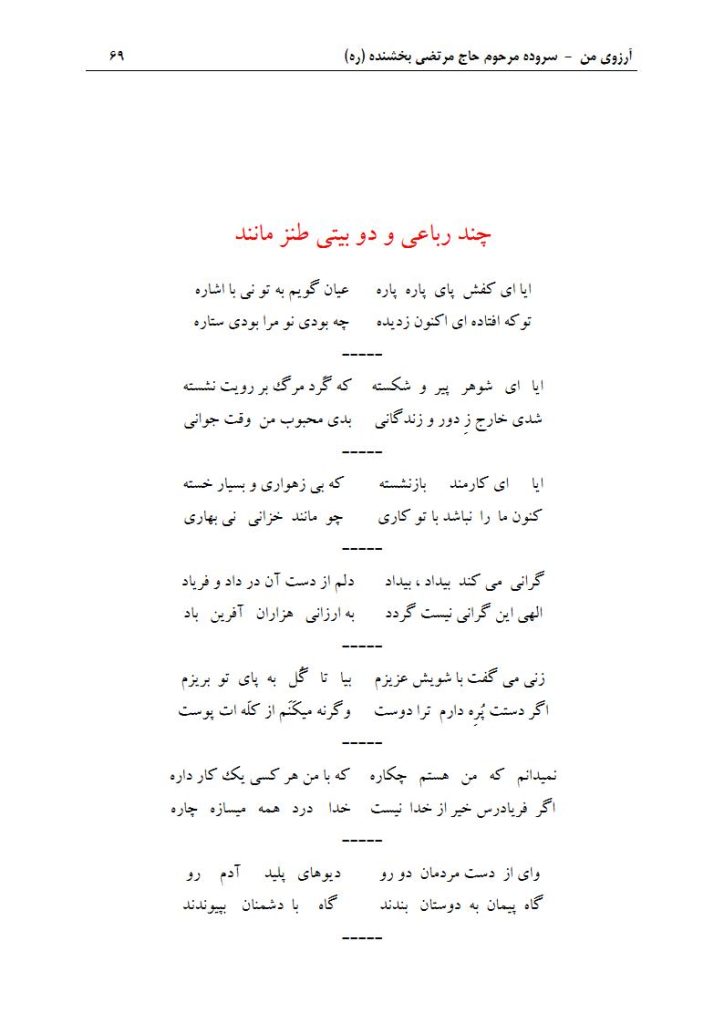 آرزوی من - سروده مرحوم حاج مرتضی بخشنده (ره) ۶۹
چند رباعی و دو بیتی طنز مانند
ایا ای کفش پای پاره پاره عیان گویم به تو نی با اشاره
توکه افتاده ای اکنون زدیده چه بودی نو مرا بودی ستاره
-----
ایا ای شوهر پیر و شکسته که گَرد مرگ بر رویت نشسته
شدی خارج زِ دور و زندگانی بدی محبوب من وقت جوانی
-----
ایا ای کارمند بازنشسته که بی زهواری و بسیار خسته
کنون ما را نباشد با تو کاری چو مانند خزانی نی بهاری
-----
گرانی می کند بیداد ، بیداد دلم از دست آن در داد و فریاد
الهی این گرانی نیست گردد به ارزانی هزاران آفرین باد
-----
زنی می گفت با شویش عزیزم بیا تا گُل به پای تو بریزم
اگر دستت پُرِه دارم ترا دوست وگرنه میکَنَم از کلّه ات پوست
-----
نمیدانم که من هستم چکاره که با من هر کسی یک کار داره
اگر فریادرس خیر از خدا نیست خدا درد همه میسازه چاره
-----
وای از دست مردمان دو رو دیوهای پلید آدم رو
گاه پیمان به دوستان بندند گاه با دشمنان بپیوندند
-----